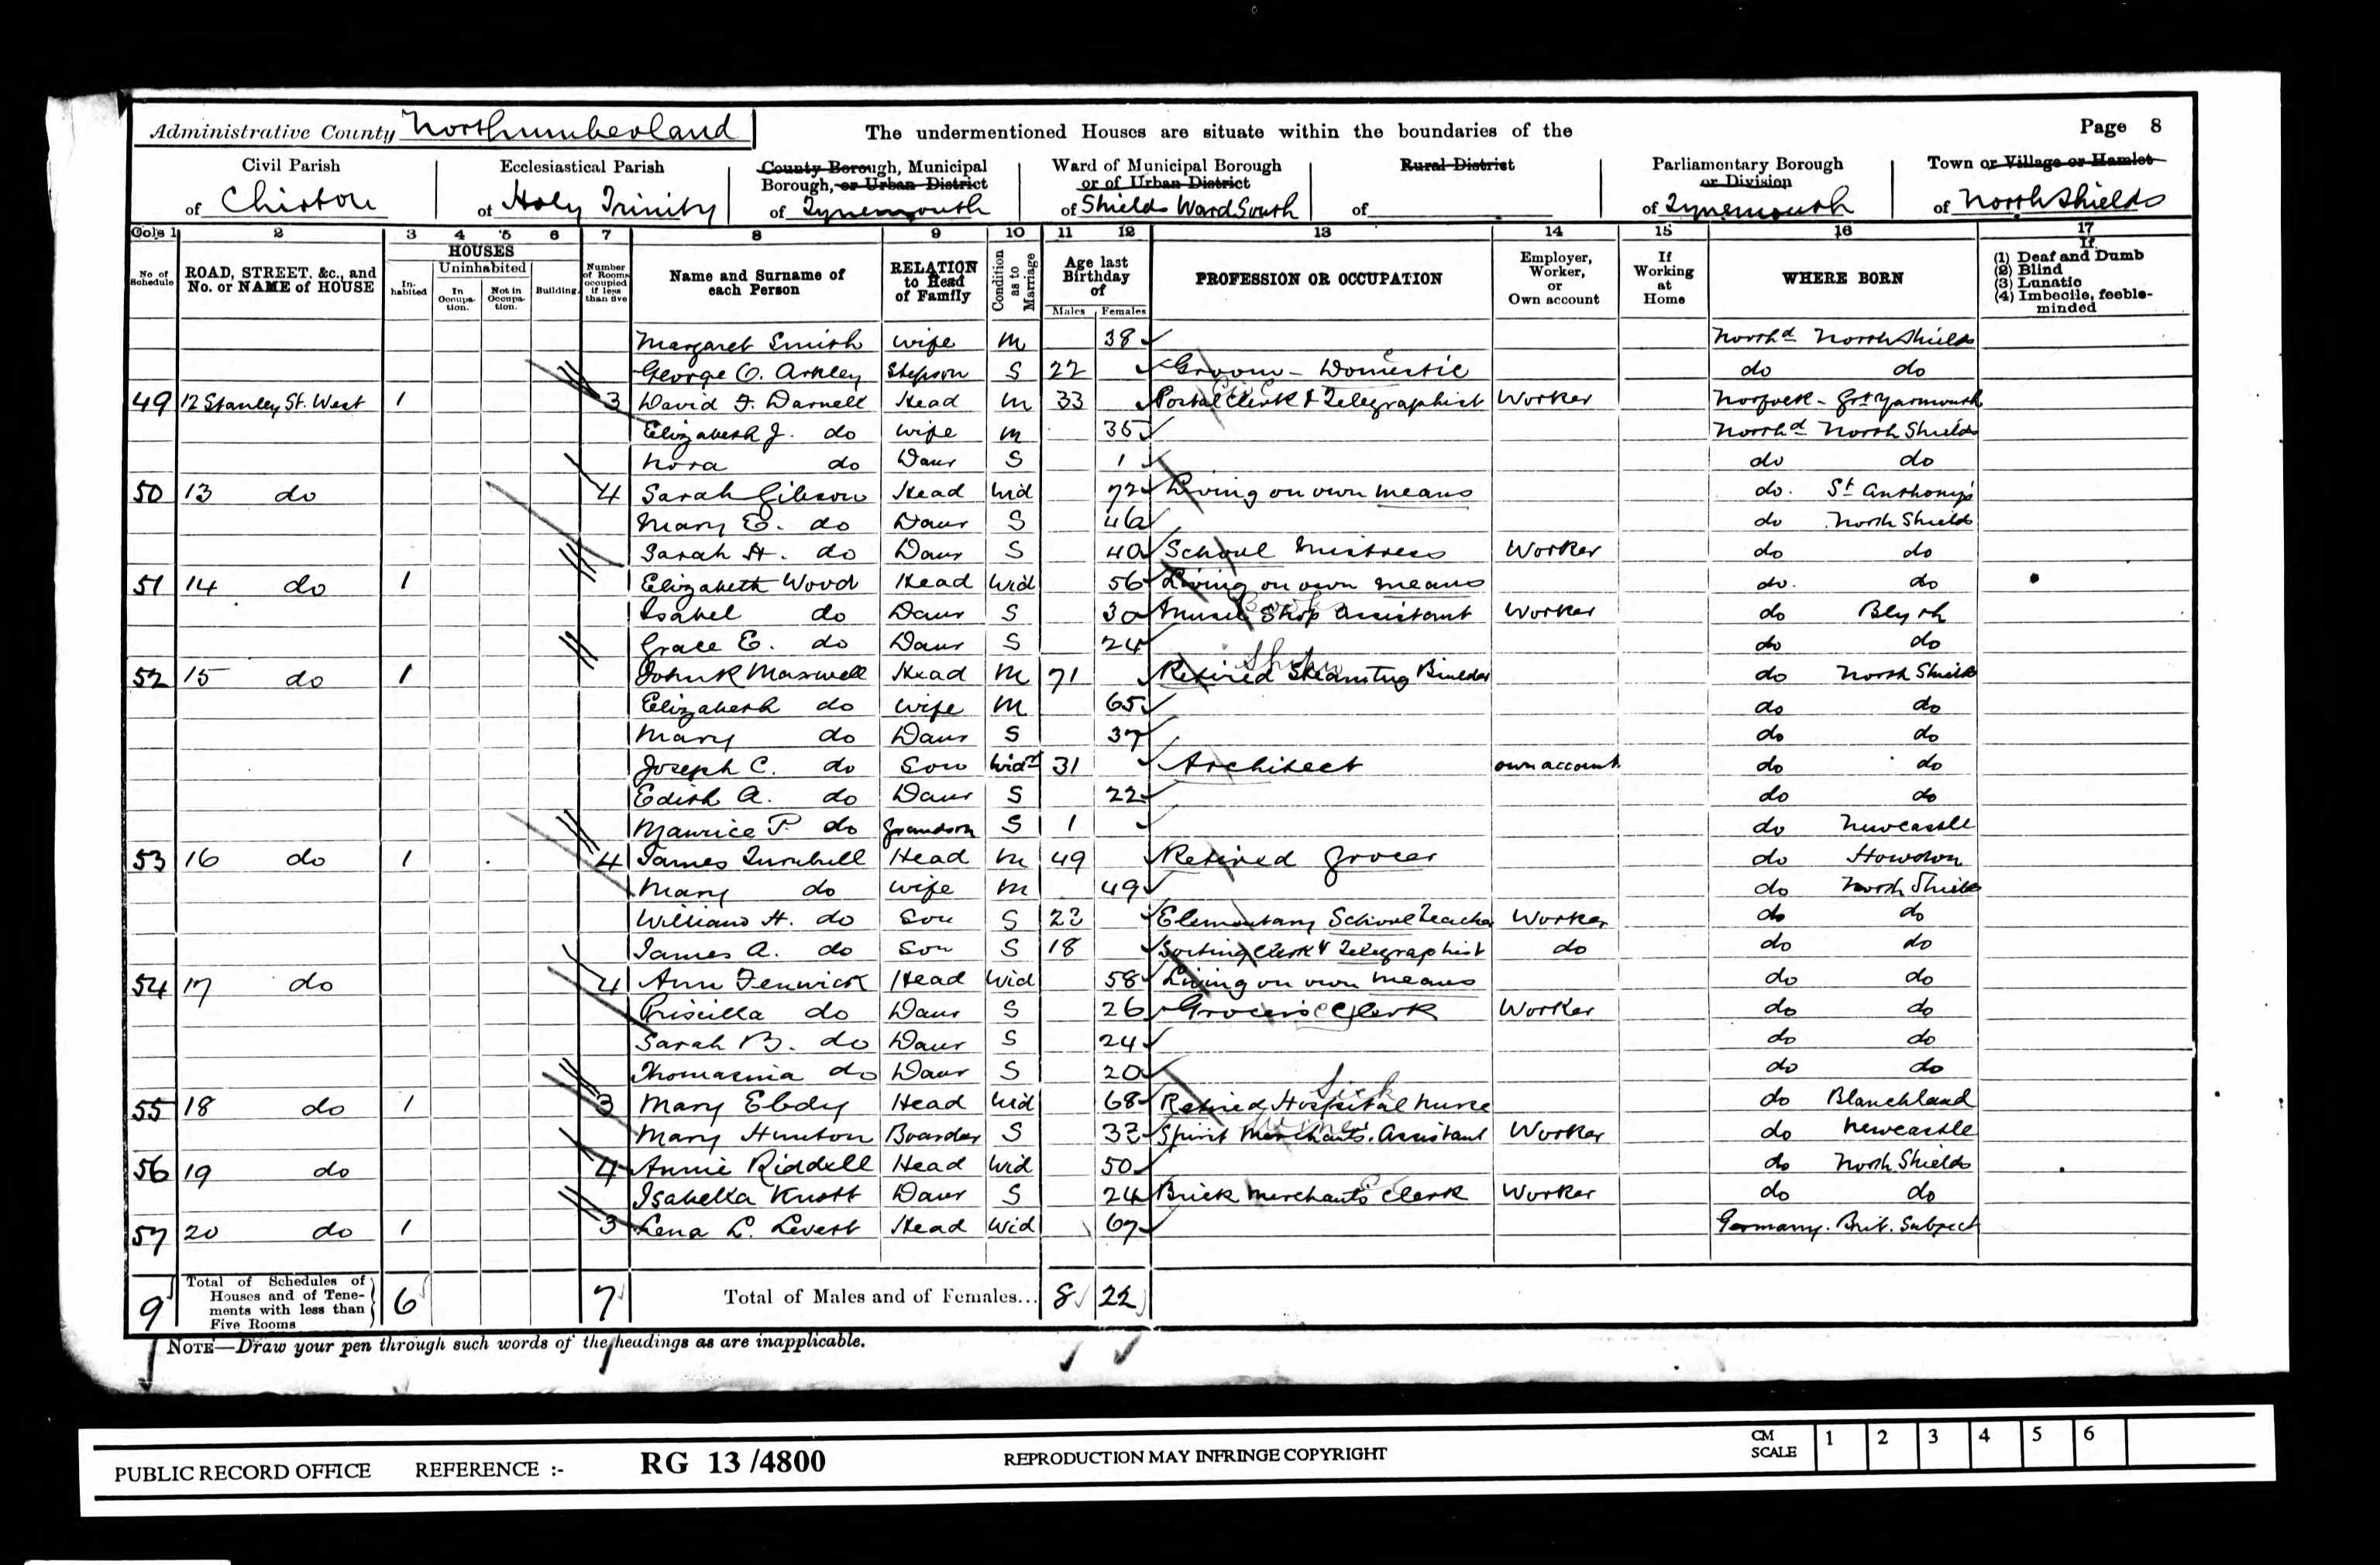 Administrative County Northumberland The undermentioned Houses are situate within the boundaries of the Page 8
Civil Parish of Chirton
Ecclesiastical Parish of Holy Trinity
County Borough, Municipal Borough, or Urban District of Tynemouth
Ward of Municipal Borough or of Urban District of Shields Ward South
Rural District of
Parliamentary Borough or Division of Tynemouth
Town or Village or Hamlet of North Shields
Cols 1 2 3 4 5 6 7 8 9 10 11 12 13 14 15 16 17
No of Schedule
ROAD, STREET, &c., and No. or NAME of HOUSE
HOUSES
Inhabited
Uninhabited
In Occupation.
Not in Occupation.
Building.
Number of Rooms occupied if less than five
Name and Surname of each Person
RELATION to Head of Family
Condition as to Marriage
Age last Birthday of
Males Females
PROFESSION OR OCCUPATION
Employer, Worker, or Own account
If Working at Home
WHERE BORN
If
(1) Deaf and Dumb
(2) Blind
(3) Lunatic
(4) Imbecile, feeble-minded
Margaret Smith wife M 38 Northd North Shields
George O. Arkley Stepson S 22 Groom - Domestic do do
49 12 Stanley St. West 1 3 David F. Darnell Head M 33 Postal Clerk & Telegraphist Worker Norfolk - Grt Yarmouth
Elizabeth J. do wife M 35 Northd North Shields
Nora do Daur S 1 do do
50 13 do 4 Sarah Gibson Head Wid 72 Living on own means do. St Anthony's
Mary E. do Daur S 46 do North Shields
Sarah H. do Daur S 40 School Mistress Worker do do
51 14 do 1 Elizabeth Wood Head Wid 56 Living on own means do. do
Isabel do Daur S 30 Music Shop Assistant Worker do Blyth
Grace E. do Daur S 24 do do
52 15 do 1 John R Maxwell Head M 71 Retired Steamtug Builder do North Shields
Elizabeth do wife M 65 do do
Mary do Daur S 37 do do
Joseph C. do Son Widr 31 Architect own account do do
Edith A. do Daur S 22 do do
Maurice P. do Grandson S 1 do Newcastle
53 16 do 1 4 James Turnbull Head M 49 Retired Grocer do Howdon
Mary do wife M 49 do North Shields
William H. do Son S 22 Elementary School Teacher Worker do do
James A. do Son S 18 Sorting Clerk & Telegraphist do do do
54 17 do 4 Ann Fenwick Head Wid 58 Living on own means do do
Priscilla do Daur S 26 Grocer's Clerk Worker do do
Sarah B. do Daur S 24 do do
Thomasina do Daur S 20 do do
55 18 do 1 3 Mary Ebdy Head Wid 68 Retired Hospital Nurse do Blanchland
Mary Hunton Boarder S 32 Spirit Merchants' Assistant Worker do Newcastle
56 19 do 4 Annie Riddell Head Wid 50 do North Shields
Isabella Knott Daur S 24 Brick Merchant's Clerk Worker do do
57 20 do 1 3 Lena L. Levert Head Wid 67 Germany. Brit. Subject
9 Total of Schedules of Houses and of Tenements with less than Five Rooms 6 7 Total of Males and of Females... 8 22
NOTE—Draw your pen through such words of the headings as are inapplicable.
PUBLIC RECORD OFFICE REFERENCE :- RG 13 /4800 REPRODUCTION MAY INFRINGE COPYRIGHT CM SCALE 1 2 3 4 5 6